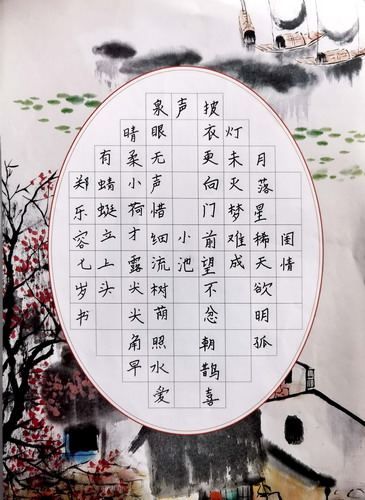 闺情
月落星稀天欲明孤
灯未灭梦难成
披衣更向门前望不忿朝鹊喜
声 小池
泉眼无声惜细流树荫照水爱
晴柔小荷才露尖尖角早
有蜻蜓立上头
郑乐容七岁书